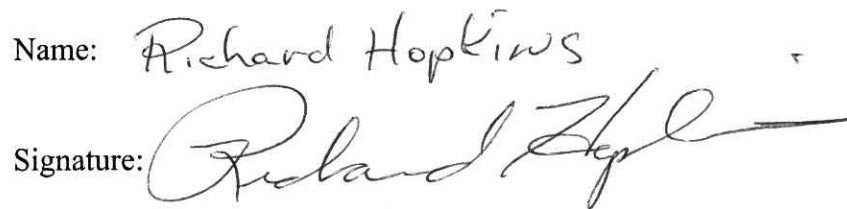 Name: Richard Hopkins
Signature: Richard Hopkins